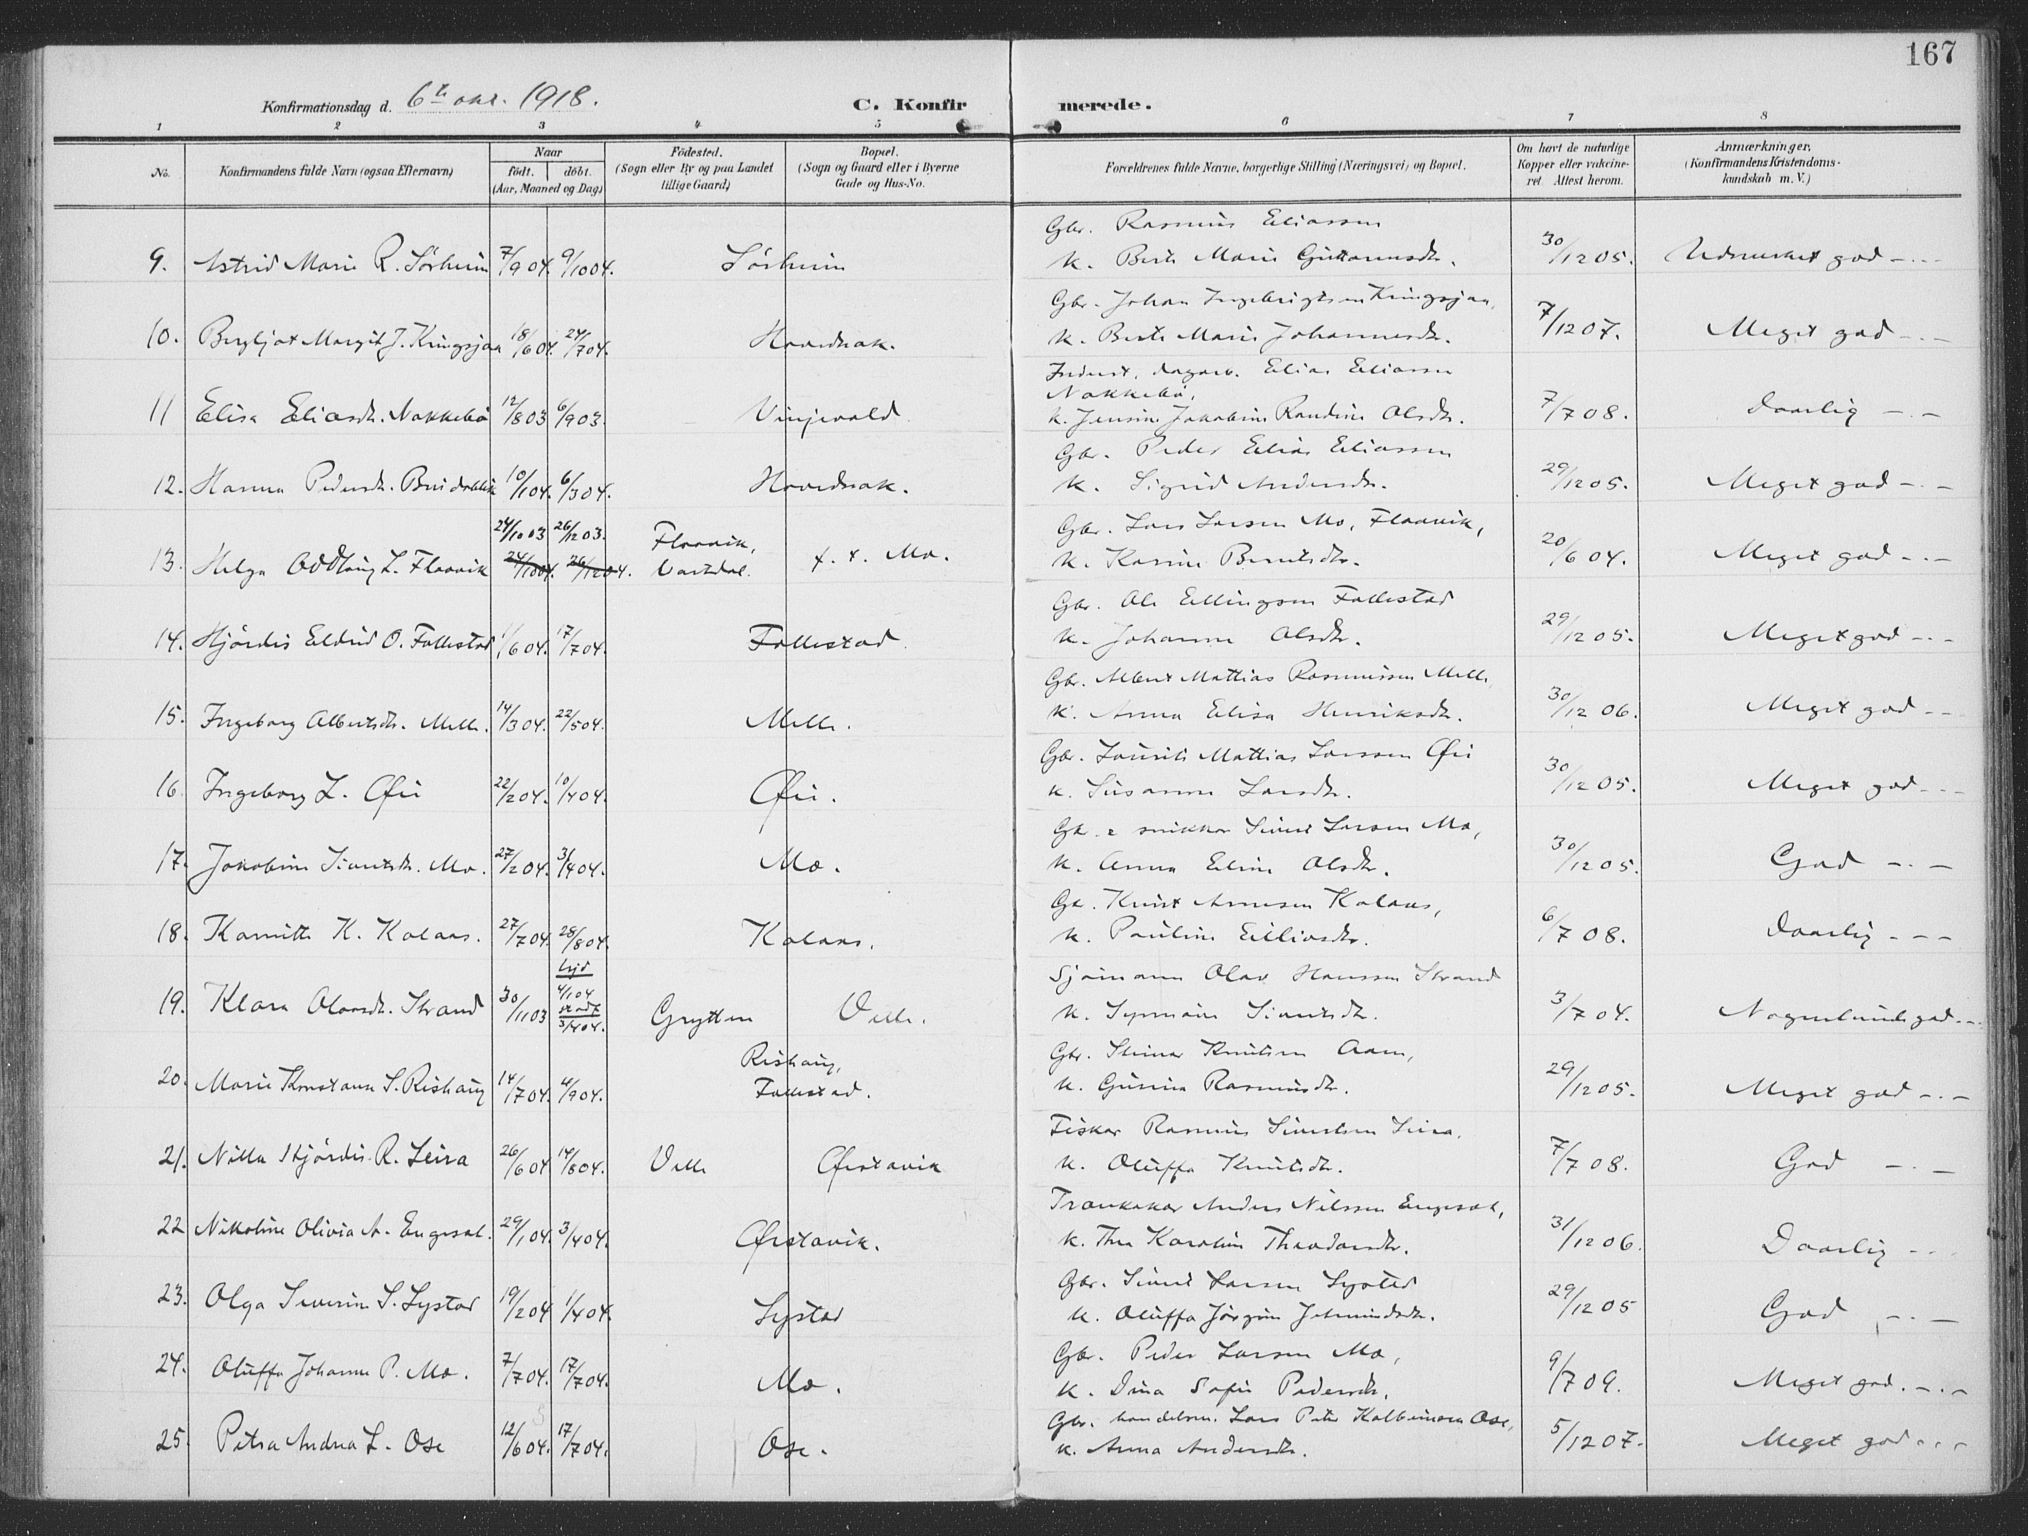 167
Konfirmationsdag d. 6te okr. 1918.
C. Konfirmerede.
1 2 3 4 5 6 7 8
No. Konfirmandens fulde Navn (ogsaa Efternavn) Naar födt. döbt. (Aar, Maaned og Dag) Födested. (Sogn eller By og paa Landet tillige Gaard) Bopæl. (Sogn og Gaard eller i Byerne Gade og Hus-No. Forældrenes fulde Navne, borgerlige Stilling (Næringsvei) og Bopæl. Om havt de naturlige Kopper eller vakcineret. Attest herom. Anmærkninger. (Konfirmandens Kristendomskundskab m. V.)
Gbr. Rasmus Eliassen
9. Astrid Marie R. Sørheim 7/9 04. 9/10 04. Sørheim K. Berte Marie Guttormsdtr. 30/12 05. Udmerket god
Gbr. Johan Ingebrigtsen Kringsjaa,
10. Bergljot Margit J. Kringsjaa 18/6 04. 24/7 04. Hovednak. K. Berte Marie Johannesdtr. 7/12 07. Meget god
Inderst, dagarb. Elias Eliassen
Nakkebø,
11 Elisa Eliasdtr. Nakkebø 12/8 03 6/9 03. Vinjevold K. Jensine Jakobine Randine Olsdtr. 7/7 08. Daarlig
Gbr. Peder Elias Eliassen
12. Hanna Pedersdtr. 10/1 04. 6/3 04. Hovednak. K. Sigrid Andersdtr. 29/12 05. Meget god
24/10 03 26/12 03. Flaavik, Gbr. Lars Larsen Mo, Flaavik,
13. Helga Oddlaug L. Flaavik 24/10 04. 26/12 04. Vartdal. f. t. Mo. K. Karine Berntsdtr. 20/6 04. Meget god
Gbr. Ole Ellingsen Follestad
14. Hjørdis Eldrid O. Follestad 1/6 04. 17/7 04. Follestad K. Johanne Olsdtr. 29/12 05. Meget god
Gbr. Albert Mattias Rasmussen Melle,
15. Ingeborg Albertsdtr. Melle. 14/3 04. 22/5 04. Melle. K. Anna Elisa Henriksdtr. 30/12 06. Meget god
Gbr. Laurits Mattias Larsen Øfsti
16. Ingeborg L. 22/2 04. 10/4 04. K. Susanne Larsdtr. 30/12 05. Meget god
Gbr. & snikkar Sivert Larsen Mo,
17. Jakobine Sivertsdtr. Mo. 27/2 04. 3/4 04. Mo. K. Anna Eline Olsdtr. 30/12 05. God
Gbr. Knut Arnesen Kolaas,
18. Kamitte K. Kolaas. 27/7 04. 28/8 04. Kolaas. K. Pauline Elliasdtr. 6/7 08. Daarlig
hjd Sjømann Olav Hanssen Strand
19. Klara Olavsdtr. Strand 30/11 03 4/1 04 stadf. 3/4 04. Grytten Velle. K. Synnøve Sivertsdtr. 3/7 04. Nogenlunde god
Rishaug, Gbr. Steinar Knutsen Aam,
20. Marie Konstanse S. Rishaug 14/7 04. 4/9 04. Follestad. K. Gurina Rasmusdtr. 29/12 05. Meget god
Fisker Rasmus Sivertsen Leira.
21. Nilla Hjørdis R. Leira 26/6 04. 14/8 04. Velle Ørstavik K. Oluffa Knutsdtr. 7/7 08. God
Trankokar Anders Nilssen Engeset,
22 Nikoline Olivia A. Engeset. 29/1 04. 3/4 04. Ørstavik. K. Thea Karoline Theodorsdtr. 31/12 06. Daarlig
Gbr. Sivert Larsen Systad
23. Olga Severine S. Systad 19/2 04 1/4 04. Systad K. Oluffa Jørgine Jetmundsdtr. 29/12 05 God
Gbr. Peder Larsen Mo,
24. Oluffa Johanne P. Mo. 7/7 04. 17/7 04. Mo. K. Dina Sofie Pedersdtr. 9/7 09. Meget god.
Gbr. handelsm. Lars Peter Kolbeinsen Ose,
25. Petra Andrea L. Ose 12/6 04. 17/7 04. Ose. K. Anna Andersdtr. 5/12 07. Meget god